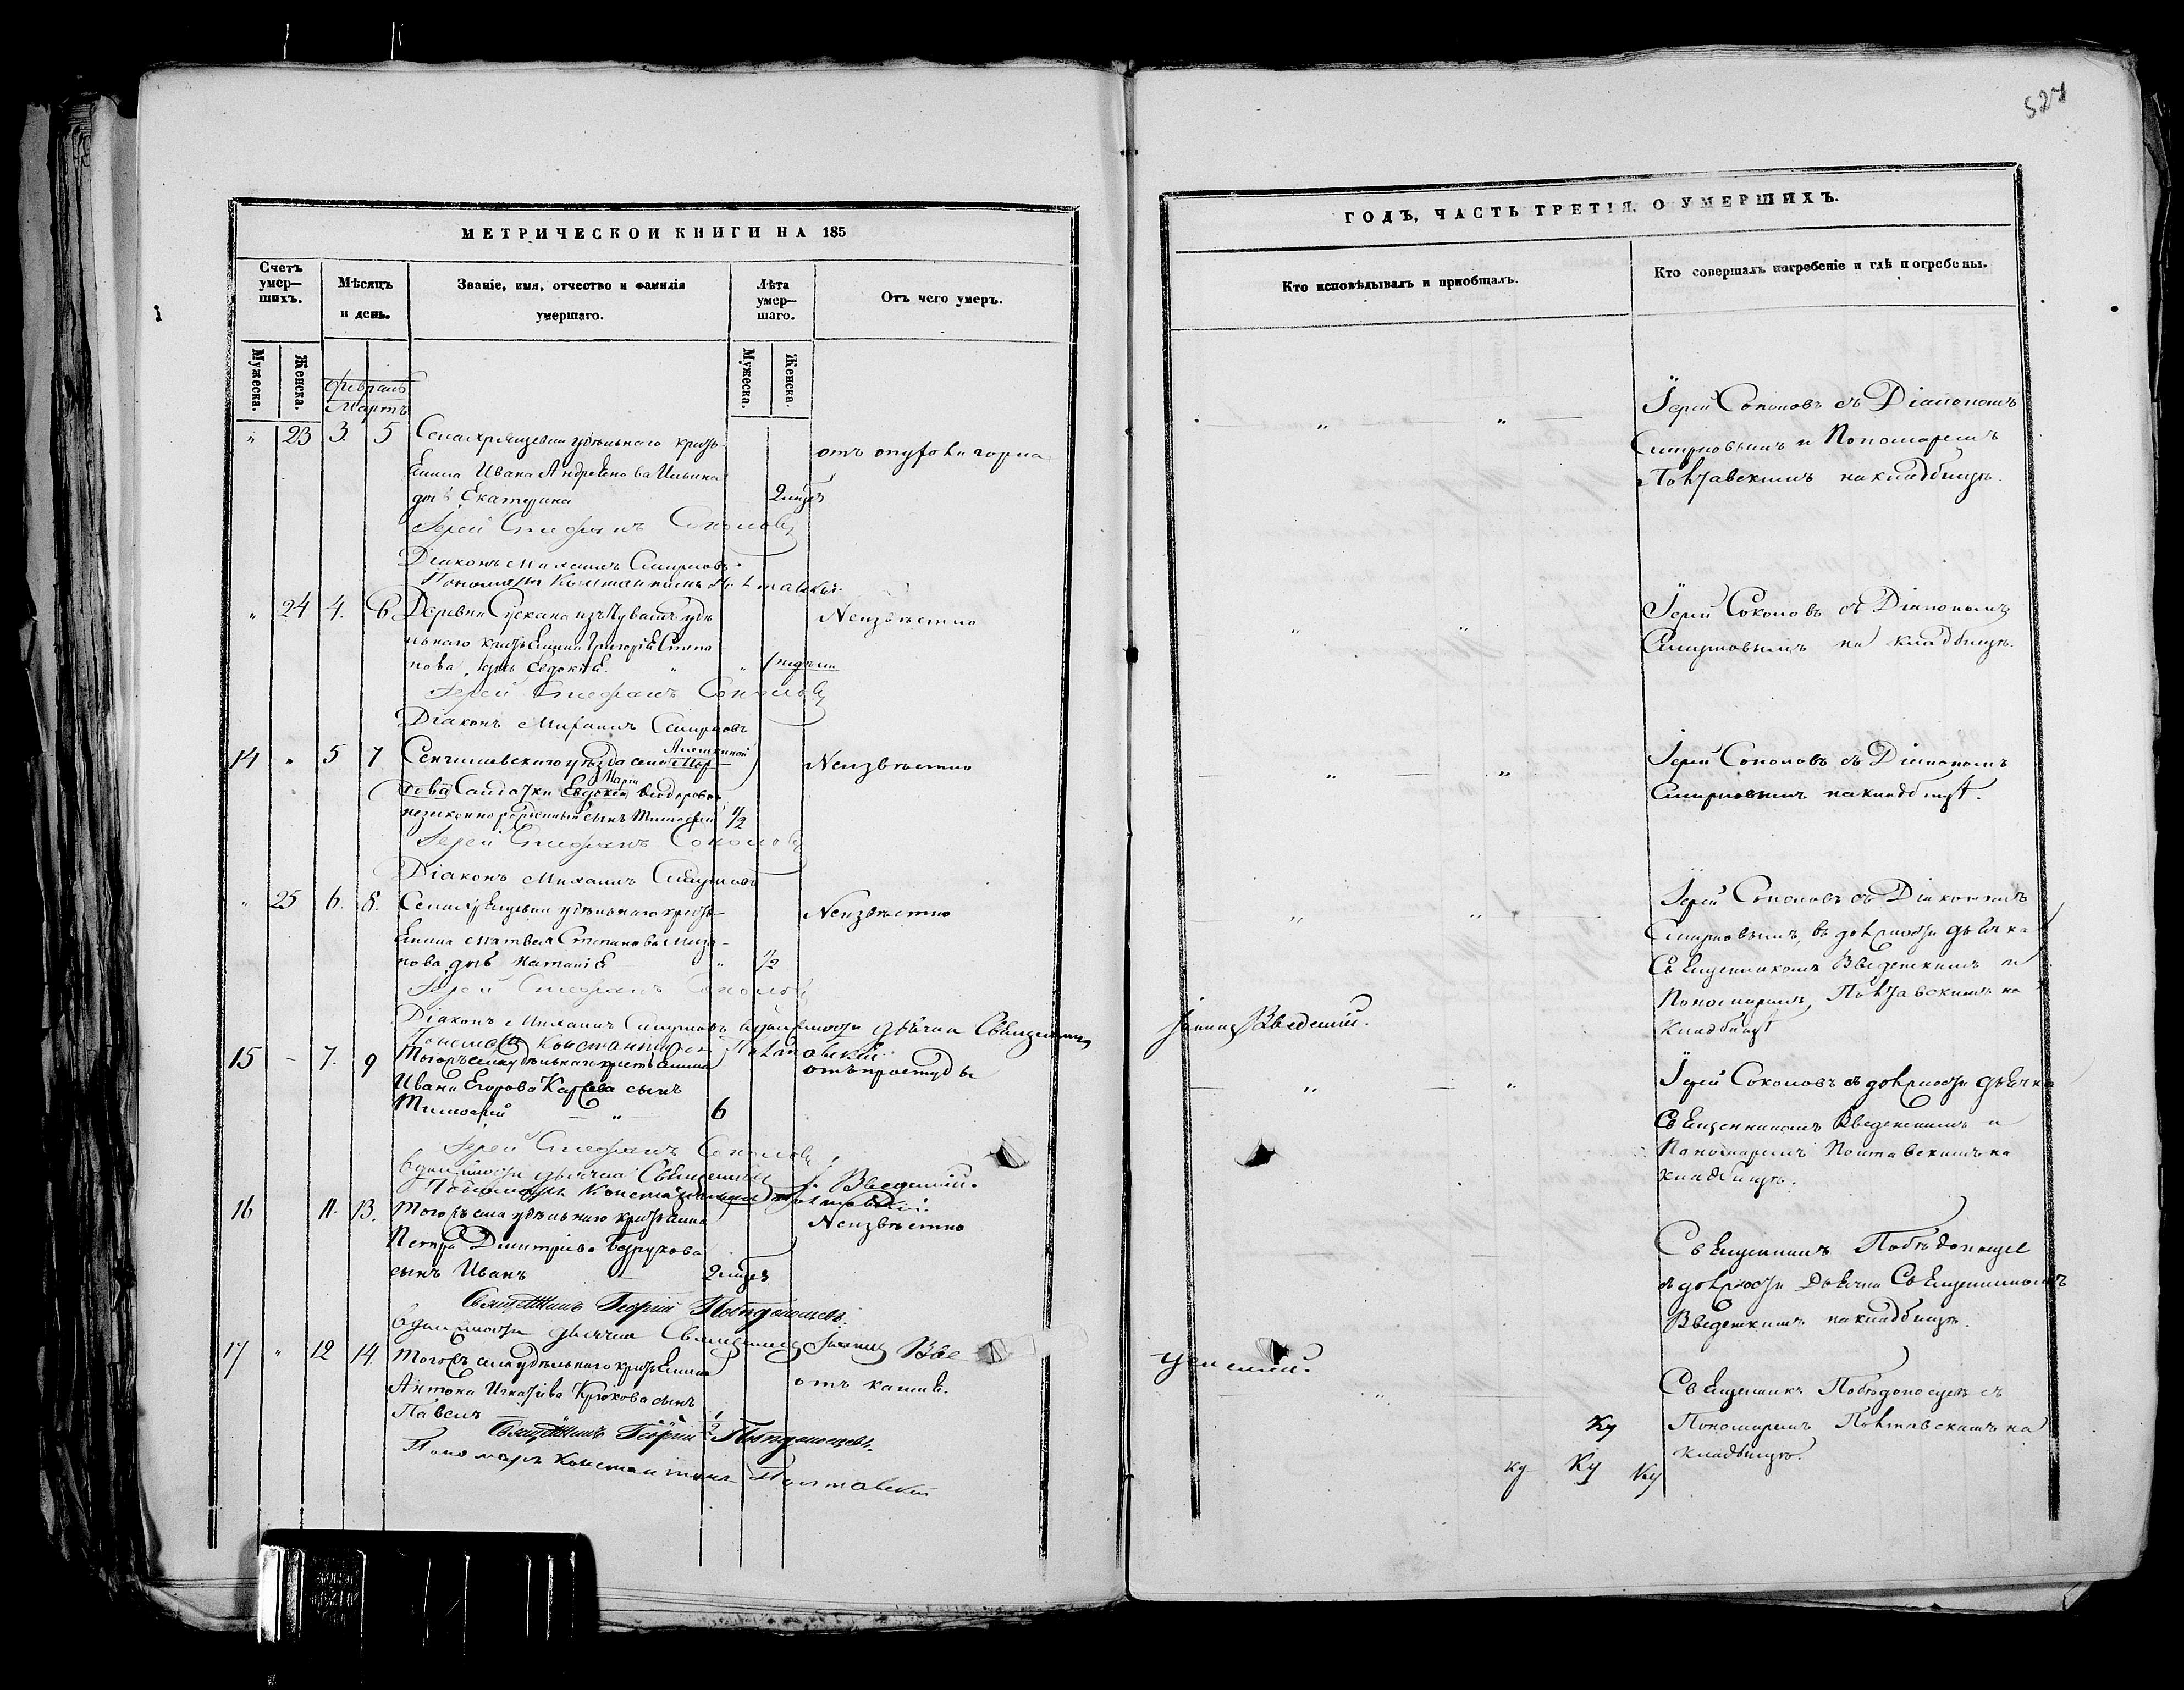 527
МЕТРИЧЕСКОЙ КНИГИ НА 185
Счетъ умер—шихъ.
Мѣсяцъ и день.
Званіе, имя, отчество и фамилія умершаго.
Лѣта умер—шаго.
Отъ чего умеръ.
Мужеска.
Женска.
Мужеска.
Женска.
Февраль
Мартъ
" 23 3. 5 Села удѣльнаго кресть-
янина Ивана Андреянова Ильина
дочь Екатерина 2 мцев
Іерей Стефанъ Соколовъ
Діаконъ Михаилъ Смирновъ
Пономарь Константинъ Полтавскій
" 24 4. 6 Деревни Сускана изъ Чувашъ удѣ
льнаго крестьянина Григорія Степа
нова, дочь Евдокія. " " 1 недѣли
Неизвѣстно
Іерей Стефанъ Соколовъ
Діаконъ Михаилъ Смирновъ
14 " 5 7 Сенгилеевскаго уѣзда села
Марiи Ѳеодоровой
незаконнорожденный сынъ Тимофей 1/2
Неизвѣстно
Іерей Стефанъ Соколовъ
Діаконъ Михаилъ Смирновъ
" 25 6. 8. Села удѣльнаго кресть-
янина Матвея Степанова
нова дочь Наталія " 1/2
Неизвѣстно
Іерей Стефанъ Соколовъ
Діаконъ Михаилъ Смирновъ въ должности дьячка Священникъ
Пономарь Константинъ Полтавскій.
15 – 7. 9 Тогожъ села удѣльнаго крестьянина
Ивана Егорова сынъ
Тимофей — " 6
отъ простуды
Іерей Стефанъ Соколовъ
Въ должности дьячка Священникъ І. Введенскій.
Пономарь Константинъ Полтавскій.
16 11. 13. Тогожъ села удѣльнаго крестьянина
Петра Димитріева Безрукова
сынъ Иванъ — 2 мцев
Неизвѣстно
Священникъ Георгій Побѣдоносцевъ.
Въ должности дьячка Священникъ Іоаннъ Вве
17 " 12 14. Тогожъ села удѣльнаго крестьянина
Антона Игнатіева Крюкова сынъ
Павелъ — 1/2
отъ кашля.
Священникъ Георгій Побѣдоносцевъ.
Пономарь Константинъ Полтавскій
ГОДЪ, ЧАСТЬ ТРЕТІЯ, О УМЕРШИХЪ.
Кто исповѣдывалъ и пріобщалъ.
Кто совершалъ погребеніе и гдѣ погребены.
Іерей Соколовъ съ Діакономъ
Смирновымъ и Пономаремъ
Полтавскимъ на кладбищѣ.
Іерей Соколовъ съ Діакономъ
Смирновымъ на кладбищѣ.
Іерей Соколовъ съ Діакономъ
Смирновымъ на кладбищѣ.
Іерей Соколовъ съ Діакономъ
Смирновымъ, въ должности дьячка
Священникомъ Введенскимъ и
Пономаремъ, Полтавскимъ на
кладбищѣ
Іоаннъ Введенскій.
Іерей Соколовъ въ должности дьячка
Священникомъ Введенскимъ и
Пономаремъ Полтавскимъ на
кладбищѣ.
Священникъ Побѣдоносцев
въ должности Дьячка Священникомъ
Введенскимъ на кладбищѣ.
денскій.
Священникъ Побѣдоносцевъ съ
Пономаремъ Полтавскимъ на
кладбищѣ.
Ку
ку Ку Ку